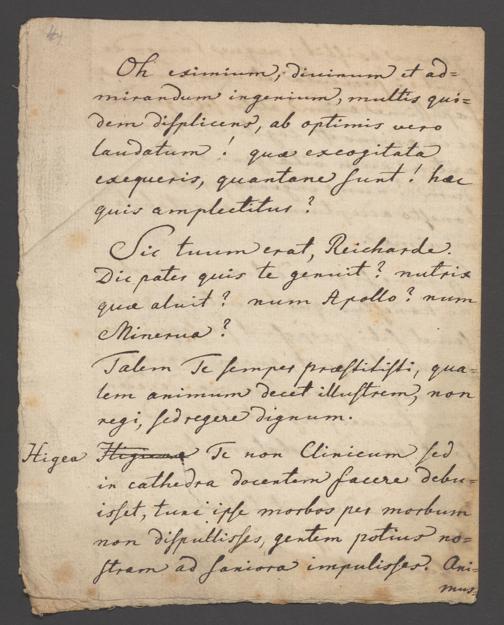 Oh eximium, divinum et ad=
mirandum ingenium, multis qui=
dem displicens, ab optimis vero
laudatum! quæ excogitata
exequeris, quantane sunt! hæc
quis amplectitur?
Sic tuum erat, Reicharde.
Dic pater quis te genuit? nutrix
quæ aluit? num Apollo? num
Minerva?
Talem Te semper præstitisti, qua=
lem animum decet illustrem, non
regi, sed regere dignum.
Higea Te non Clinicum sed
in cathedra docentem facere debu=
isset, tunc ipse morbos per morbum
non dispullisses, gentem potius no=
stram ad saniora impulisses. Ani=
mus